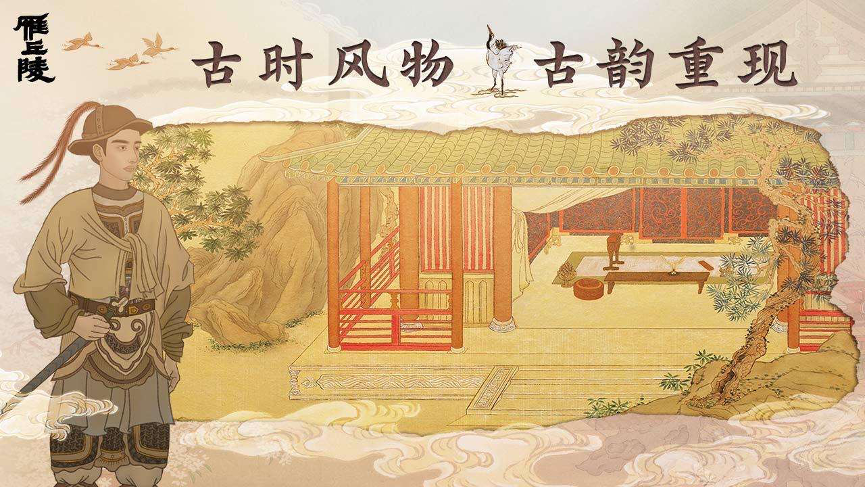 雁丘陵
古时风物 古韵重现